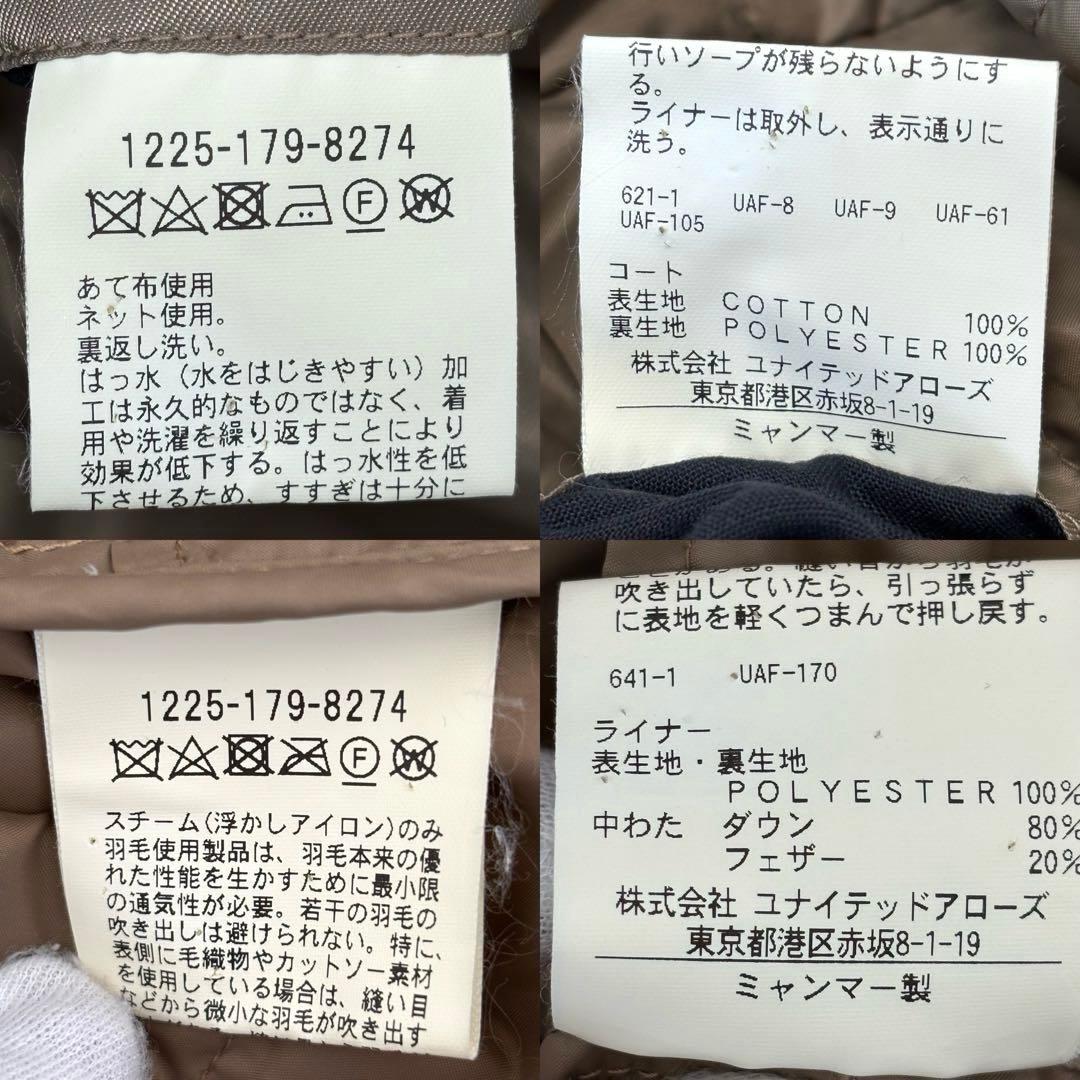 1225-179-8274
F W
あて布使用
ネット使用。
裏返し洗い。
はっ水（水をはじきやすい）加
工は永久的なものではなく、着
用や洗濯を繰り返すことにより
効果が低下する。はっ水性を低
下させるため、すすぎは十分に
行いソープが残らないようにす
る。
ライナーは取外し、表示通りに
洗う。
621-1 UAF-8 UAF-9 UAF-61
UAF-105
コート
表生地 COTTON 100%
裏生地 POLYESTER 100%
株式会社 ユナイテッドアローズ
東京都港区赤坂8-1-19
ミャンマー製
1225-179-8274
F W
スチーム(浮かしアイロン)のみ
羽毛使用製品は、羽毛本来の優
れた性能を生かすために最小限
の通気性が必要。若干の羽毛の
吹き出しは避けられない。特に、
表側に毛織物やカットソー素材
を使用している場合は、縫い目
などから微小な羽毛が吹き出す
吹き出していたら、引っ張らず
に表地を軽くつまんで押し戻す。
641-1 UAF-170
ライナー
表生地・裏生地
POLYESTER 100%
中わた ダウン 80%
フェザー 20%
株式会社 ユナイテッドアローズ
東京都港区赤坂8-1-19
ミャンマー製